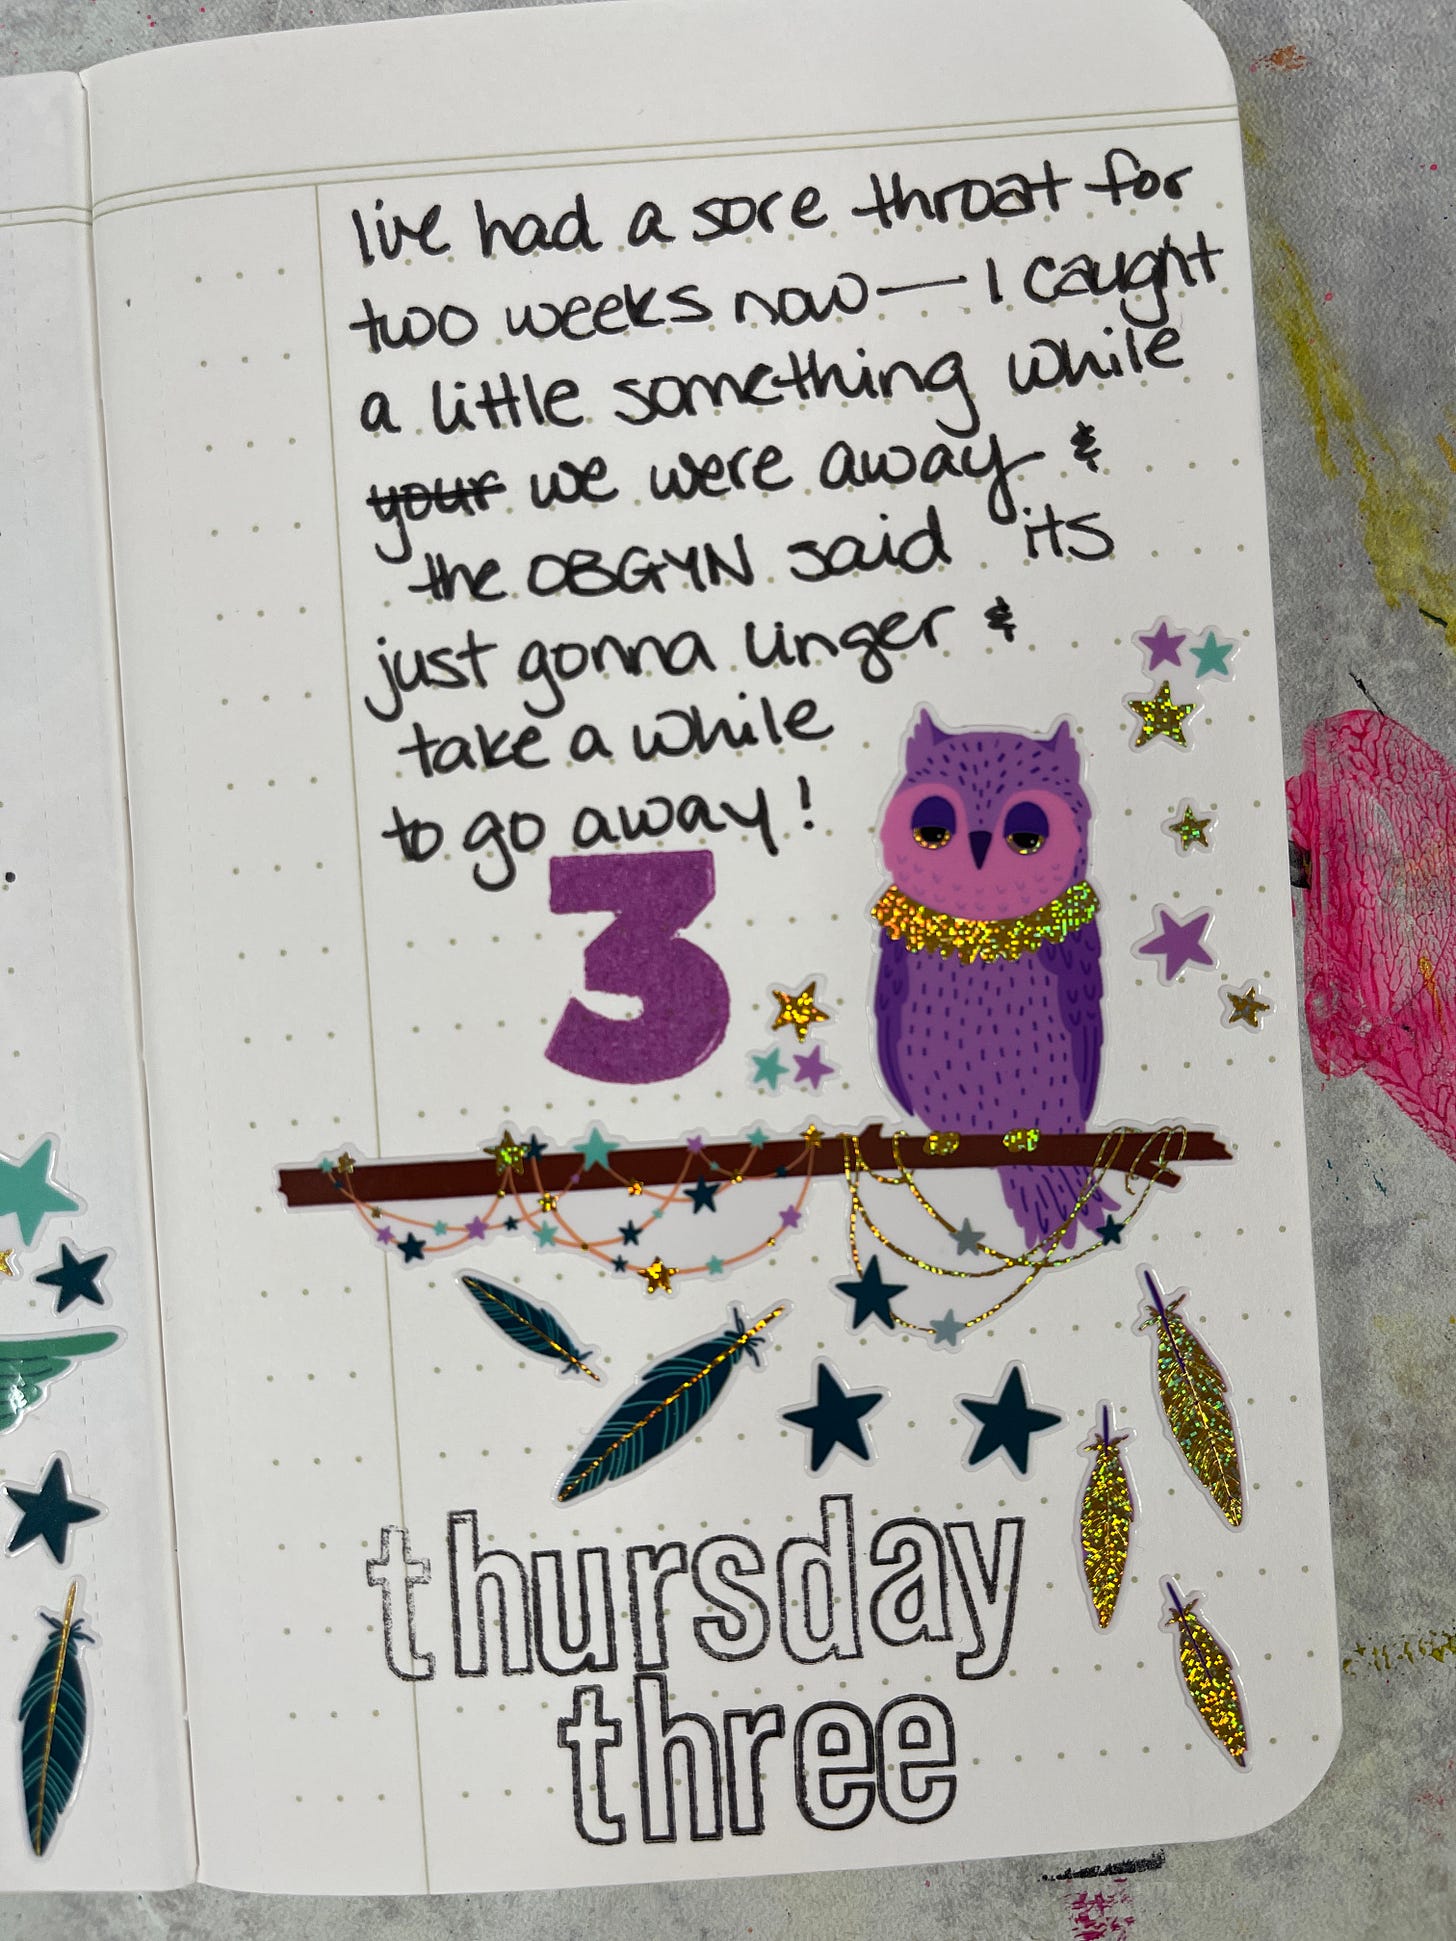 I've had a sore throat for
two weeks now — I caught
a little something while
your we were away &
the OBGYN said its
just gonna linger &
take a while
to go away!
3
thursday
three